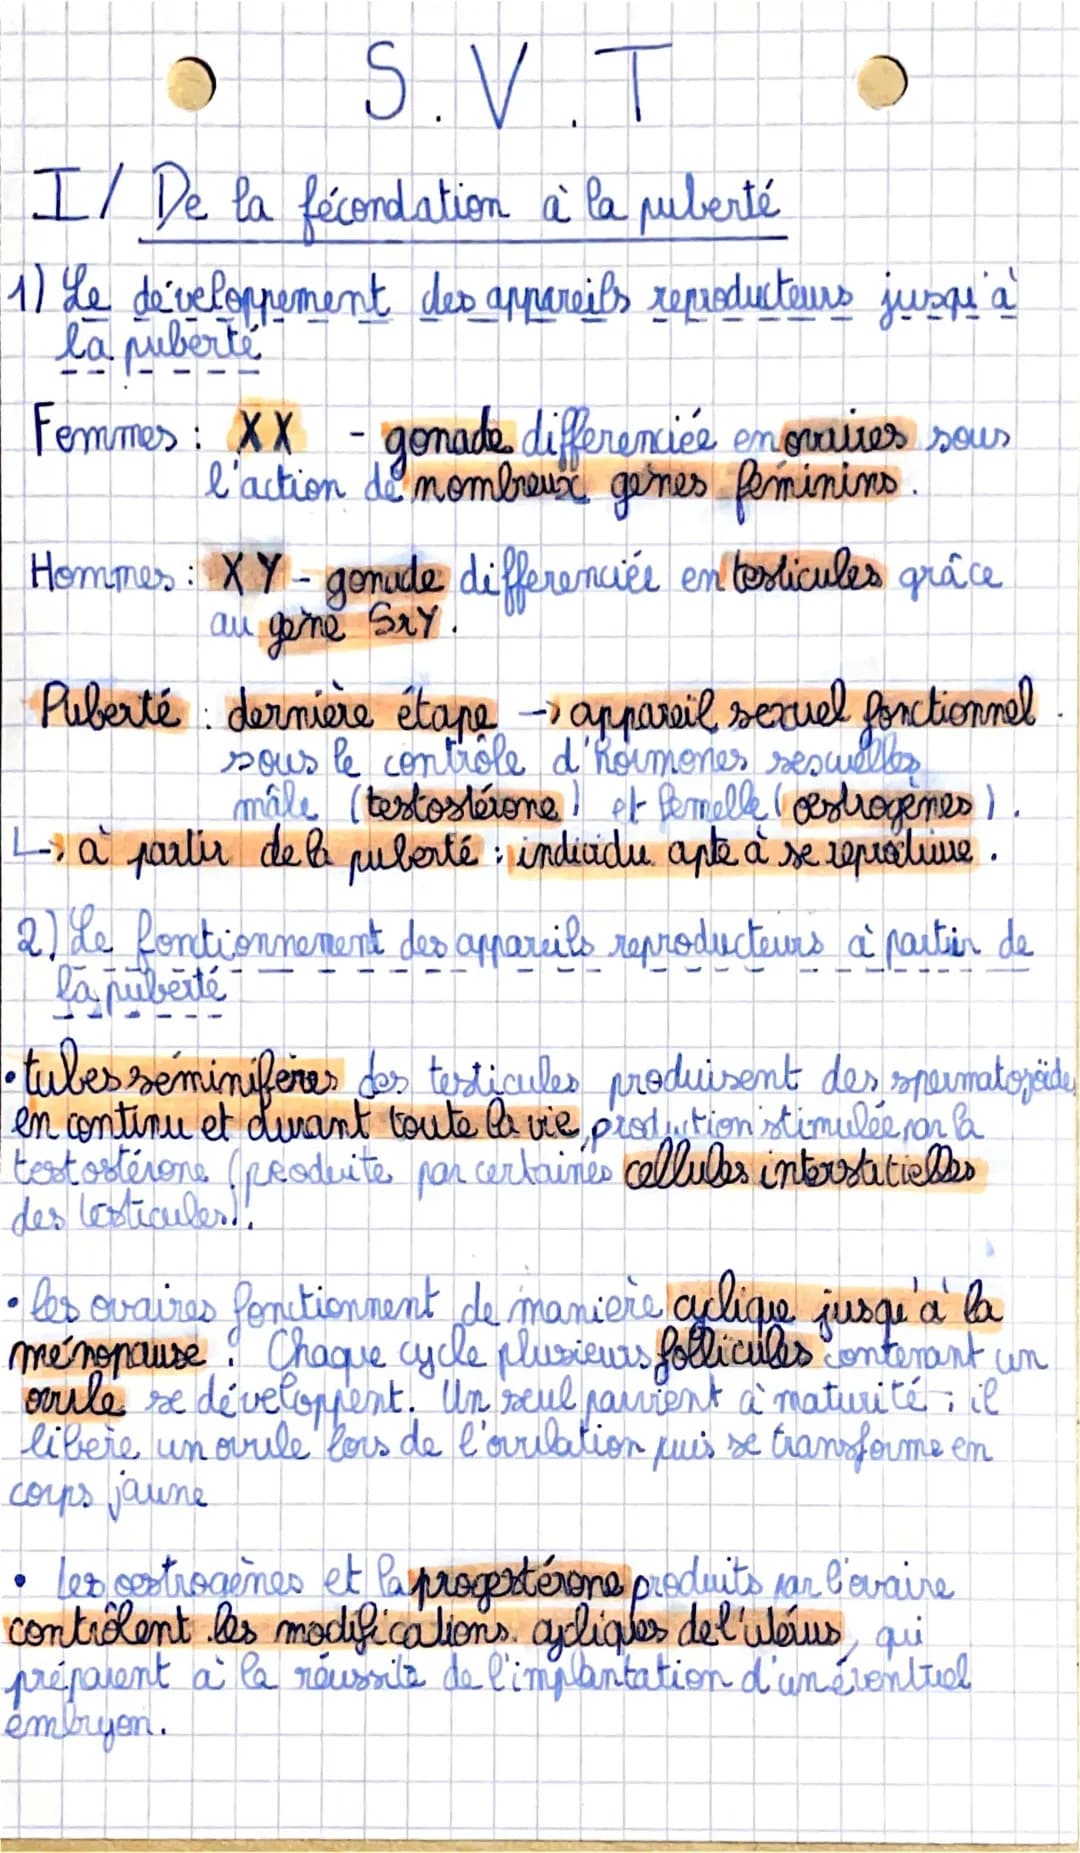 S.V.T
I/ De la fécondation à la puberté
1) Le développement des appareils reproducteurs jusqu'à
la puberté
Femmes : XX - gonade differenciée en ovaires sous
l'action de nombreux gènes féminins.
Hommes : XY - gonade differenciée en testicules grâce
au gène SrY.
Puberté : dernière étape -> appareil sexuel fonctionnel.
sous le contrôle d'hormones sexuelles
mâle (testostérone) et femelle (œstrogènes).
↳ à partir de la puberté : individu apte à se reproduire.
2) Le fontionnement des appareils reproducteurs à partir de
la puberté
• tubes séminifères des testicules produisent des spermatozoïde
en continu et durant toute la vie, production stimulée par la
testostérone (produite par certaines cellules interstitielles
des testicules).
• les ovaires fonctionnent de manière cyclique jusqu'à la
ménopause. Chaque cycle plusieurs follicules contenant un
ovule se développent. Un seul parvient à maturité ; il
libère un ovule lors de l'ovulation puis se transforme en
corps jaune
• Les œstrogènes et la progestérone produits par l'ovaire
contrôlent les modifications cycliques de l'utérus, qui
préparent à la réussite de l'implantation d'un éventuel
embryon.